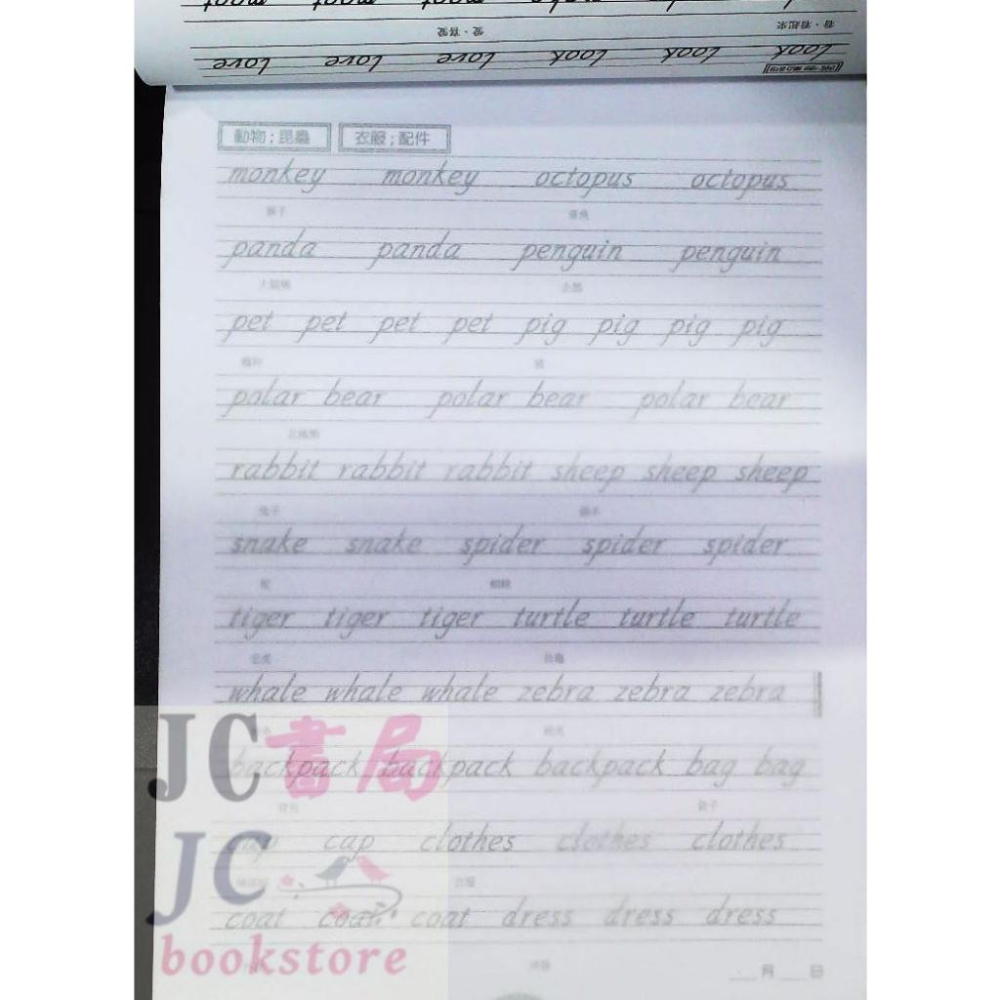 love love love look look look
愛・喜愛 看・看起來
動物;昆蟲 衣服;配件
monkey monkey octopus octopus
猴子 章魚
panda panda penguin penguin
大貓熊 企鵝
pet pet pet pet pig pig pig pig
寵物 豬
polar bear polar bear polar bear
北極熊
rabbit rabbit rabbit sheep sheep sheep
兔子 綿羊
snake snake spider spider spider
蛇 蜘蛛
tiger tiger tiger turtle turtle turtle
老虎 烏龜
whale whale whale zebra zebra zebra
斑馬
backpack backpack backpack bag bag
背包 袋子
cap cap clothes clothes clothes
衣服
coat coat coat dress dress dress
洋裝
月 日
JC書局
JC
bookstore